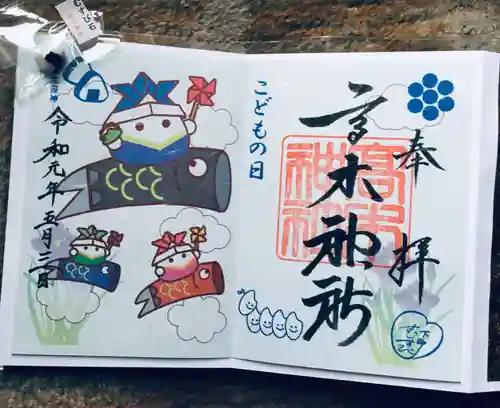 奉拝
高木神社
高木
神社
こどもの日
令和元年五月三日